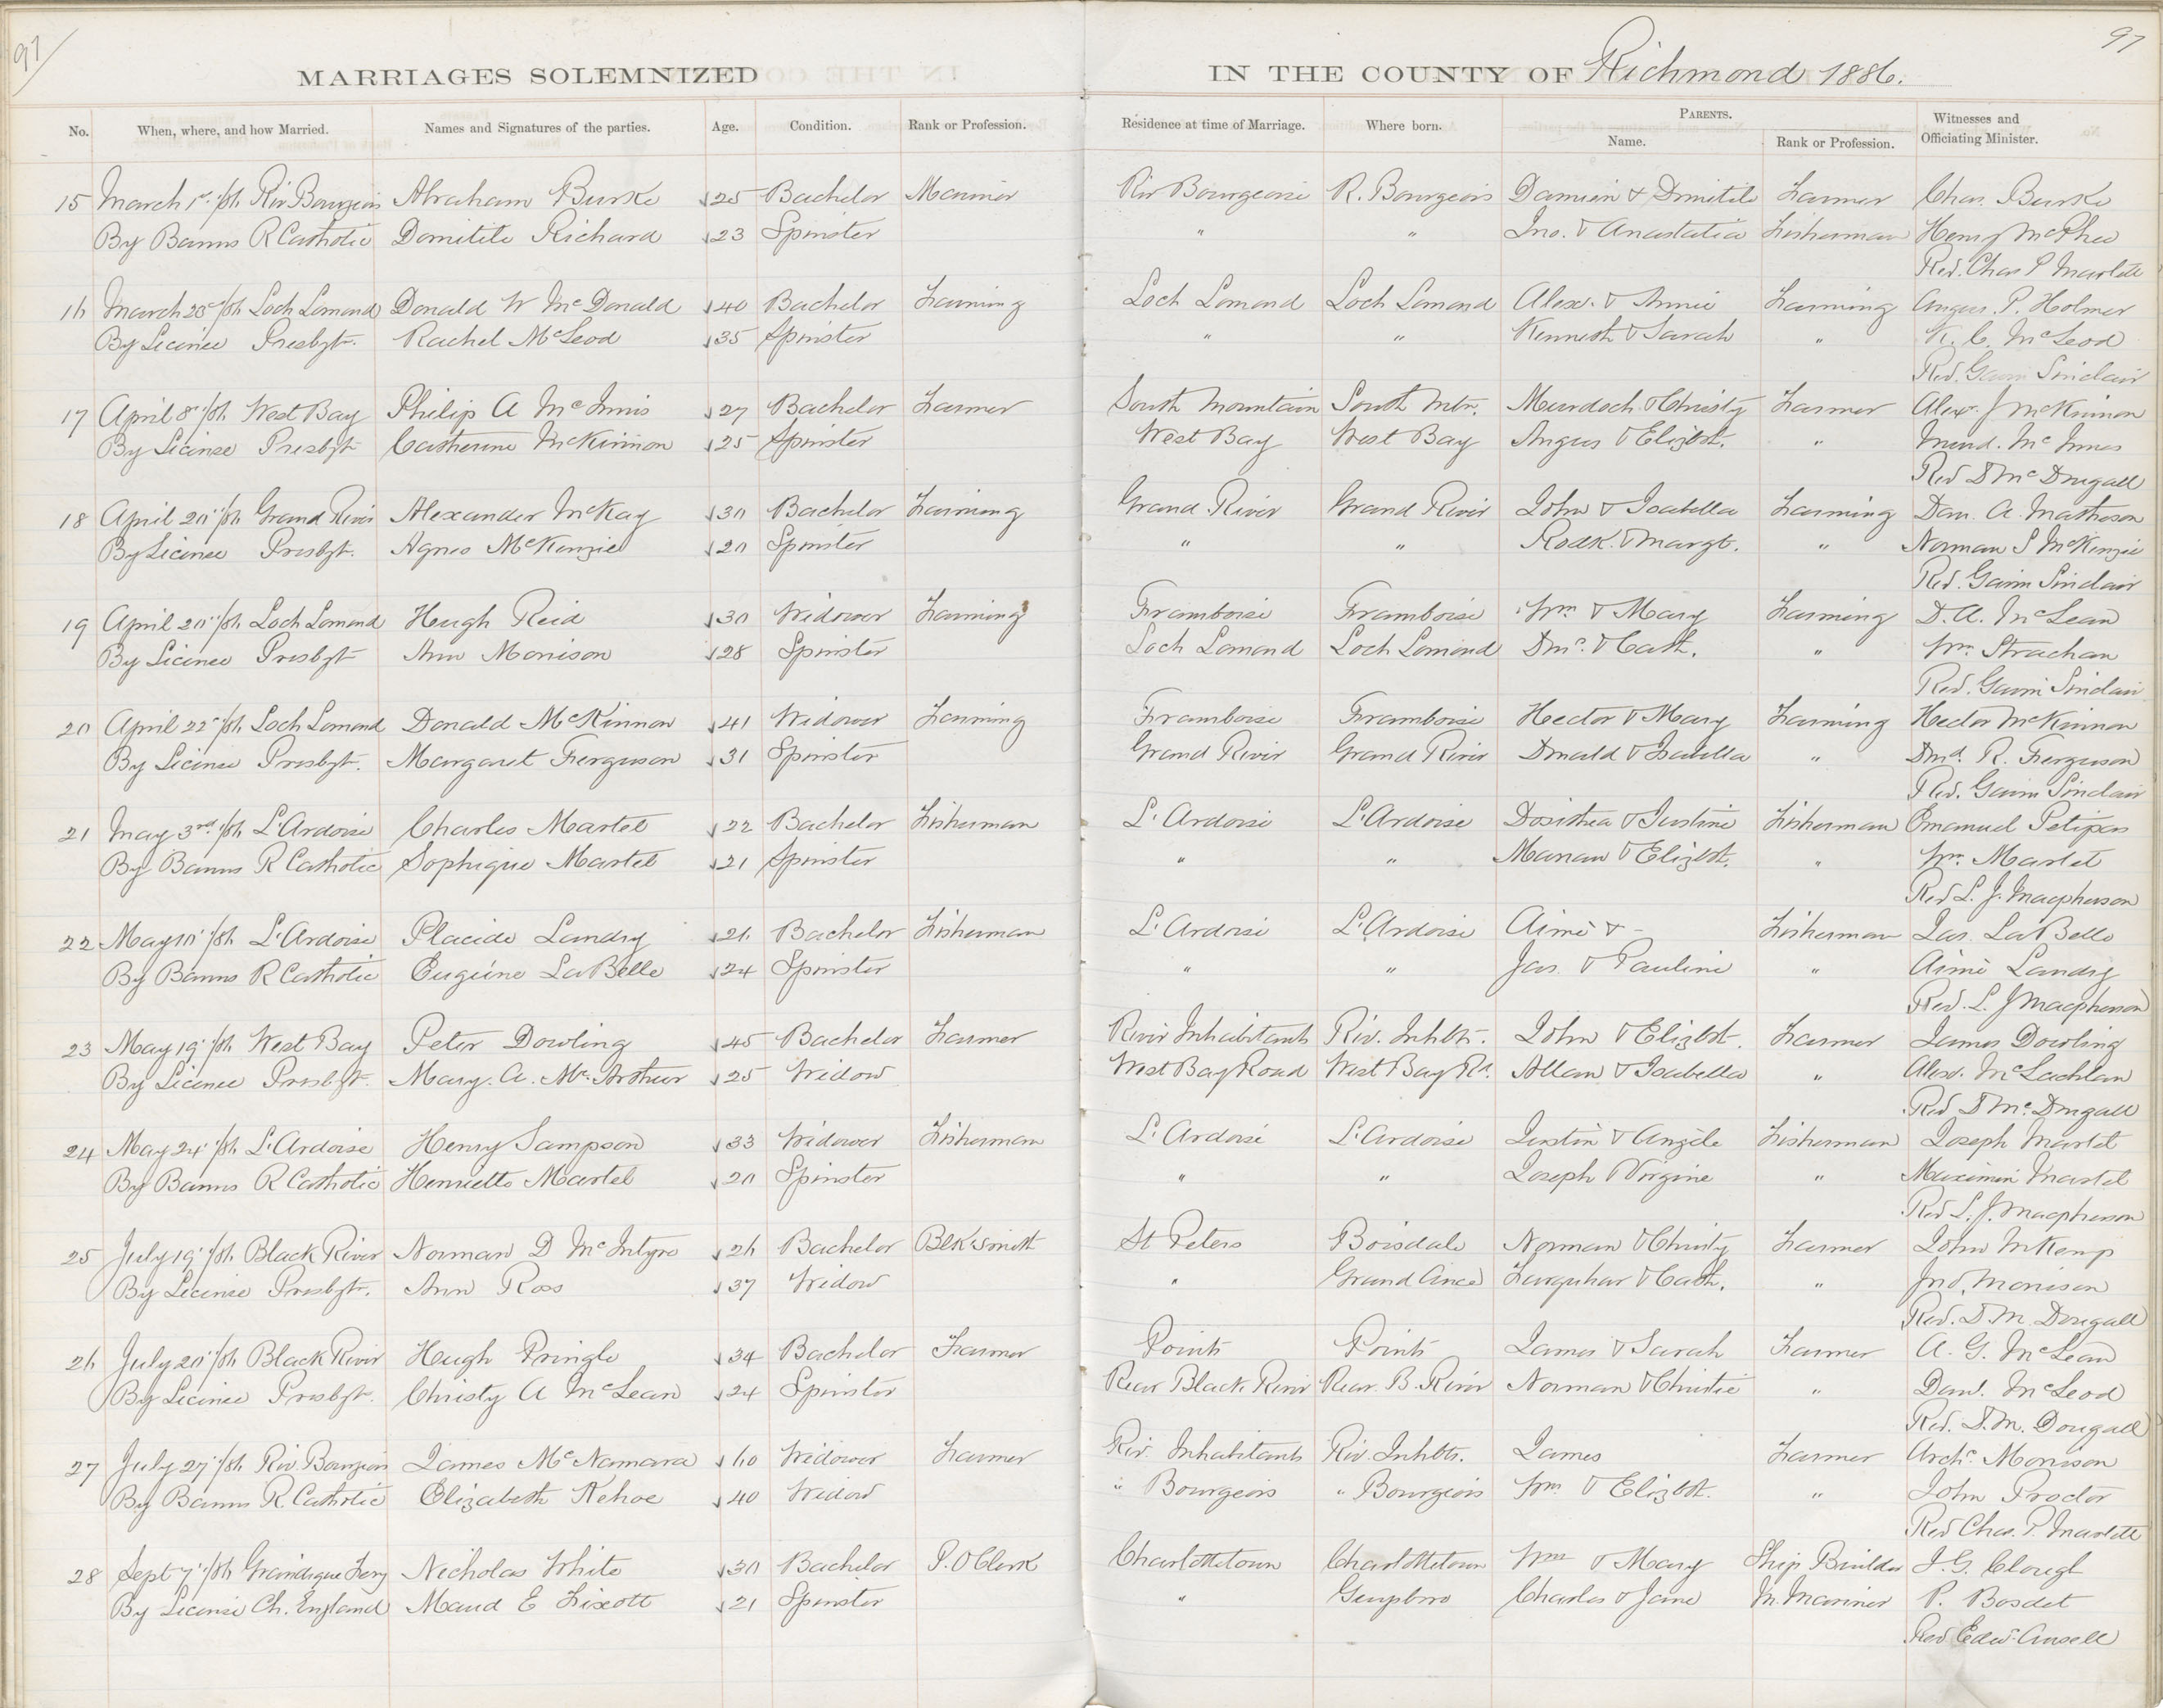 97 97
MARRIAGES SOLEMNIZED IN THE COUNTY OF Richmond 1886.
No. When, where, and how Married. Names and Signatures of the parties. Age. Condition. Rank or Profession. Residence at time of Marriage. Where born. PARENTS. Witnesses and Officiating Minister.
Name. Rank or Profession.
15 March 1st /86 Riv Bourgeois Abraham Burke 25 Bachelor Mariner Riv Bourgeois R. Bourgeois Damien & Dimitile Farmer Chas. Burke
By Banns R Catholic Domitile Richard 23 Spinster " " Jno. & Anastatia Fisherman Henry McPhee
Rev. Chas P Martell
16 March 23rd /86 Loch Lomond Donald W McDonald 40 Bachelor Farming Loch Lomond Loch Lomond Alex. & Annie Farming Angus P. Holmes
By Licince Presbyt. Rachel McLeod 35 Spinster " " Kenneth & Sarah " K. C. McLeod
Rev. Gavin Sinclair
17 April 8" /86 West Bay Philip A McInnis 27 Bachelor Farmer South Mountain South Mtn. Murdoch & Christy Farmer Alexr. J McKinnon
By License Presbyt Catherine McKinnon 25 Spinster West Bay West Bay Angus & Elizbt. " Murd. McInnes
Rev D McDougall
18 April 20" /86 Grand River Alexander McKay 30 Bachelor Farming Grand River Grand River John & Isabella Farming Dan. A. Matheson
By Licince Presbyt. Agnes McKenzie 20 Spinster " " Rodk. & Margt. " Norman S McKenzie
Rev. Gavin Sinclair
19 April 20" /86 Loch Lomond Hugh Reid 30 Widower Farming Framboise Framboise Wm & Mary Farming D. A. McLean
By Licince Presbyt Ann Morrison 28 Spinster Loch Lomond Loch Lomond & Cath. " Wm. Strachan
Rev. Gavin Sinclair
20 April 22" /86 Loch Lomond Donald McKinnon 41 Widower Farming Framboise Framboise Hector & Mary Farming Hector McKinnon
By Licince Presbyt. Margaret Ferguson 31 Spinster Grand River Grand River Donald & Isabella " R. Ferguson
Rev. Gavin Sinclair
21 May 3rd /86 L'Ardoise Charles Martel 22 Bachelor Fisherman L'Ardoise L'Ardoise Dosithea & Justine Fisherman Emanuel Petipas
By Banns R Catholic Sophique Martel 21 Spinster " " & Elizbt. " Wm. Martel
Rev L. J. Macpherson
22 May 10" /86 L'Ardoise Placide Landry 26 Bachelor Fisherman L'Ardoise L'Ardoise Aimè & - Fisherman Jas. LaBelle
By Banns R Catholic Eugéine LaBelle 24 Spinster " " Jas. & Pauline " Aimè Landry
Rev. L. J Macpherson
23 May 19" /86 West Bay Peter Dowling 45 Bachelor Farmer River Inhabitants Riv. Inhbts. John & Elizbt. Farmer James Dowling
By Licince Presbyt. Mary. A. McArthur 25 Widow West Bay Road West Bay Rd. Allan & Isabella " Alex. McLachlan
Rev D McDougall
24 May 24" /86 L'Ardoise Henry Sampson 33 Widower Fisherman L'Ardoise L'Ardoise Justin & Angèle Fisherman Joseph Martel
By Banns R Catholic Henriette Martel 20 Spinster " " Joseph & Virgine " Maximin Martel
Rev L. J. Macpherson
25 July 19" /86 Black River Norman D McIntyre 26 Bachelor Blk Smith St Peters Boisdale Norman & Christy Farmer John McKemp
By Licince Presbyt. Ann Ross 37 Widow " Grand Ance Farquhar & Cath. " Jno. Morrison
Rev. D. M. Dougall
26 July 20" /86 Black River Hugh Pringle 34 Bachelor Farmer Points Points James & Sarah Farmer A. G. McLean
By Licince Presbyt. Christy A McLean 24 Spinster Rear Black River Rear B. River Norman & Christie " McLeod
Rev. D. M. Dougall
27 July 27" /86 Riv. Bourgeois James McNamara 60 Widower Farmer Riv. Inhabitants Riv. Inhbts. James Farmer Archd. Morrison
By Banns R. Catholic Elizabeth Kehoe 40 Widow " Bourgeois " Bourgeois Wm. & Elizbt. " John Proctor
Rev Chas. P. Martell
28 Sept 7" /86 Grandique Ferry Nicholas White 30 Bachelor P. O Clerk Charlottetown Charlottetown Wm & Mary Ship Builder J. G. Clough
By License Ch. England Maud E Lixott 21 Spinster " Guysboro Charles & Jane M. Mariner P. Bosdet
Rev Edw. Ansell